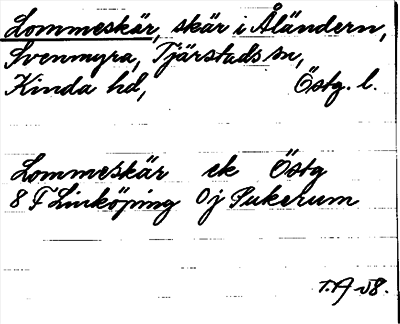 Lommeskär, skär i Åländern,
Svenmyra, Tjärstads sn,
Kinda hd, Östg. l.
Lommeskär ek Östg
8 F Linköping 0j Sukerum
T.A-58.